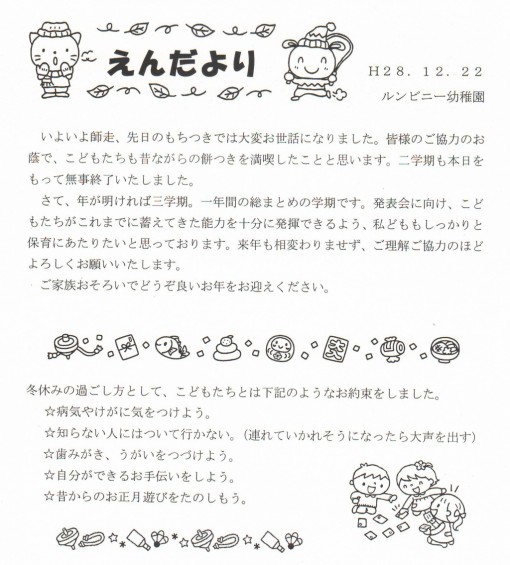 えんだより
H28.12.22
ルンビニー幼稚園
いよいよ師走、先日のもちつきでは大変お世話になりました。皆様のご協力のお
蔭で、こどもたちも昔ながらの餅つきを満喫したことと思います。二学期も本日を
もって無事終了いたしました。
さて、年が明ければ三学期。一年間の総まとめの学期です。発表会に向け、こど
もたちがこれまでに蓄えてきた能力を十分に発揮できるよう、私どももしっかりと
保育にあたりたいと思っております。来年も相変わりませず、ご理解ご協力のほど
よろしくお願いいたします。
ご家族おそろいでどうぞ良いお年をお迎えください。
冬休みの過ごし方として、こどもたちとは下記のようなお約束をしました。
☆病気やけがに気をつけよう。
☆知らない人にはついて行かない。（連れていかれそうになったら大声を出す）
☆歯みがき、うがいをつづけよう。
☆自分ができるお手伝いをしよう。
☆昔からのお正月遊びをたのしもう。